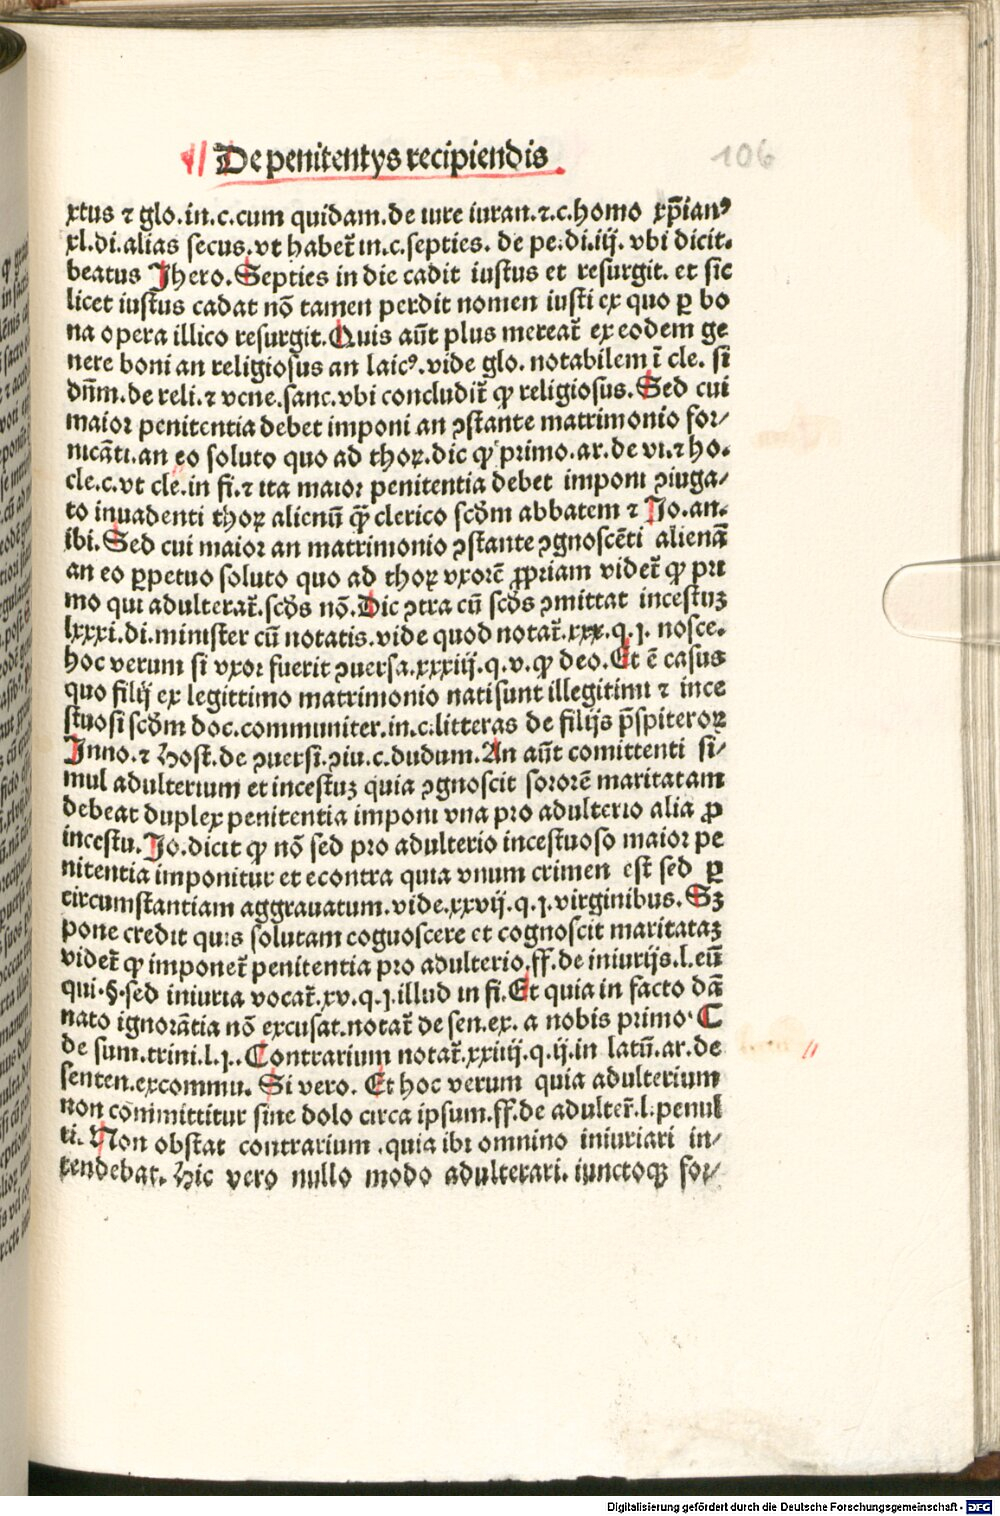 De penitentys recipiendis
106
xtus ⁊ glo.in.c.cum quidam.de iure iuran.⁊.c.homo xp̄ianꝰ
xl.di.alias secus.vt habet᷑ in.c.septies. de pe.di.iij. vbi dicit.
beatus Jhero.Septies in die cadit iustus et resurgit. et sic
licet iustus cadat nō tamen perdit nomen iusti ex quo ꝑ bo
na opera illico resurgit.Quis aūt plus mereat᷑ ex eodem ge
nere boni an religiosus an laicꝰ.vide glo. notabilem ī cle. si
dn̄m.de reli.⁊ vene.sanc.vbi concludit᷑ ꝙ religiosus.Sed cui
maior penitentia debet imponi an ꝯstante matrimonio for⸗
nicāti.an eo soluto quo ad thoꝝ.dic ꝙ primo.ar.de vi.⁊ ho.
cle.c.vt cle.in fi.⁊ ita maior penitentia debet imponi ꝯiuga⸗
to inuadenti thoꝝ alienū qᷓ clerico scd̄m abbatem ⁊ Jo.an.
ibi.Sed cui maior an matrimonio ꝯstante ꝯgnoscēti alienā
an eo ꝑpetuo soluto quo ad thoꝝ vxorē ꝓpriam videt᷑ ꝙ pri
mo qui adulterat᷑.scd̄s nō.Dic ꝯtra cū scd̄s ꝯmittat incestuꝫ
lxxxi.di.minister cū notatis.vide quod notat᷑.xxx.q.j. nosce.
hoc verum si vxor fuerit ꝯuersa.xxxiij.q.v.ꝙ deo.Et ē casus
quo filij ex legittimo matrimonio nati sunt illegitimi ⁊ ince
stuosi scd̄m doc.communiter.in.c.litteras de filijs p̄spiteroꝝ
Inno.⁊ Host.de ꝯuersi.ꝯiu.c.dudum.An aūt comittenti si⸗
mul adulterium et incestuꝫ quia ꝯgnoscit sororē maritatam
debeat duplex penitentia imponi vna pro adulterio alia ꝓ
incestu.Jo.dicit ꝙ nō sed pro adulterio incestuoso maior pe
nitentia imponitur et econtra quia vnum crimen est sed ꝑ
circumstantiam aggrauatum.vide.xxvij.q.j.virginibus.Sꝫ
pone credit quis solutam coguoscere et cognoscit maritataꝫ
videt᷑ ꝙ imponet᷑ penitentia pro adulterio.ff.de iniurijs.l.eū
qui.§.sed iniuria vocat᷑.xv.q.j.illud in fi.Et quia in facto dā
nato ignorātia nō excusat.notat᷑ de sen.ex. a nobis primo.C
de sum.trini.l.j..Contrarium notat᷑.xxiiij.q.ij.in latū.ar.de
senten.excommu. Si vero. Et hoc verum quia adulterium
non committitur sine dolo circa ipsum.ff.de adulter᷑.l.penul
ti.Non obstat contrarium .quia ibi omnino iniuriari in⸗
tendebat. Hic vero nullo modo adulterari. iunctoqꝫ for⸗
Digitalisierung gefördert durch die Deutsche Forschungsgemeinschaft - DFG